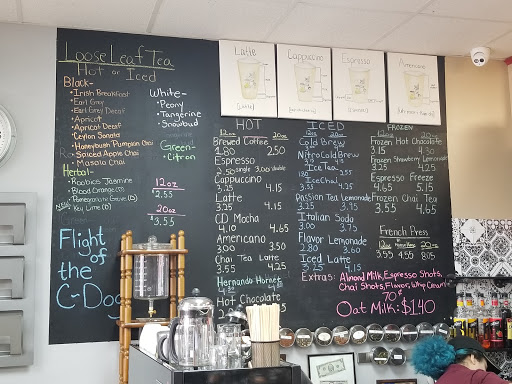 Loose Leaf Tea
Hot or Iced
Black-
Irish Breakfast
Earl Grey
Earl Grey Decaf
Apricot
Apricot Decaf
Ceylon Sonata
Honeybush Pumpkin Chai
Spiced Apple Chai
Masala Chai
Herbal-
Rooibos Jasmine
Blood Orange (D)
Pomegranate Guava (D)
New Key Lime (D)
White-
Peony
Tangerine
Snowbud
Green-
Citron
12oz
2.55
20oz
3.55
Flight
of
the
C-Dog
Latte
Cappuccino
Espresso
Americano
HOT
12oz 20oz
Brewed Coffee
1.80 2.50
Espresso
2.50 single 3.00 double
Cappuccino
3.25 4.15
Latte
3.25 4.15
CD Mocha
4.10 4.65
Americano
2.00 3.50
Chai Tea Latte
3.55 4.25
Hernando Hornet
Hot Chocolate
ICED
12oz 20oz
Cold Brew
Nitro Cold Brew
Ice Tea
Ice Chai
4.25
Passion Tea Lemonade
3.25 3.95
Italian Soda
3.00 3.75
Flavor Lemonade
2.80 3.60
Iced Latte
3.25 4.15
FROZEN
12oz 20oz
Frozen Hot Chocolate
3.15 4.30
Frozen Strawberry Lemonade
3.25 4.25
Espresso Freeze
4.65 5.15
Frozen Chai Tea
3.55 4.65
French Press
12oz 20oz
3.55 4.55 8.05
Extras: Almond Milk, Espresso Shots,
Chai Shots, Flavor, Whip Cream
70¢
Oat Milk: $1.40